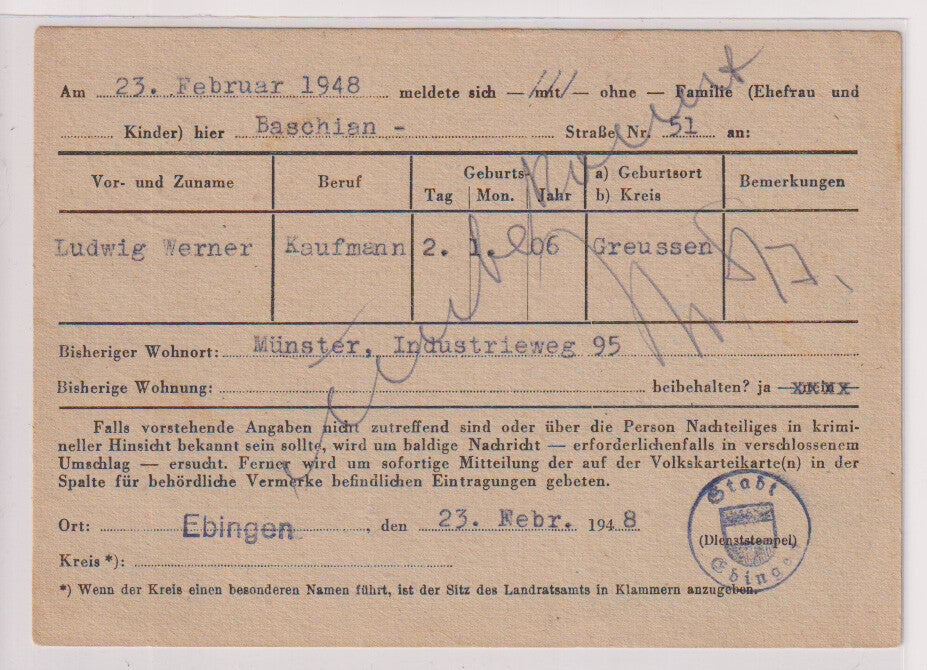 Am 23. Februar 1948 meldete sich — mit — ohne — Familie (Ehefrau und
Kinder) hier Baschian - Straße Nr. 51 an:
Vor- und Zuname Beruf Geburts- Tag Mon. Jahr a) Geburtsort b) Kreis Bemerkungen
Ludwig Werner Kaufmann 2. 1. 06 Greussen
Bisheriger Wohnort: Münster, Industrieweg 95
Bisherige Wohnung: beibehalten? ja —
Falls vorstehende Angaben nicht zutreffend sind oder über die Person Nachteiliges in krimi-
neller Hinsicht bekannt sein sollte, wird um baldige Nachricht — erforderlichenfalls in verschlossenem
Umschlag — ersucht. Ferner wird um sofortige Mitteilung der auf der Volkskarteikarte(n) in der
Spalte für behördliche Vermerke befindlichen Eintragungen gebeten.
Ort: Ebingen, den 23. Febr. 1948
(Dienststempel)
Stadt
Ebingen
Kreis *):
*) Wenn der Kreis einen besonderen Namen führt, ist der Sitz des Landratsamts in Klammern anzugeben.